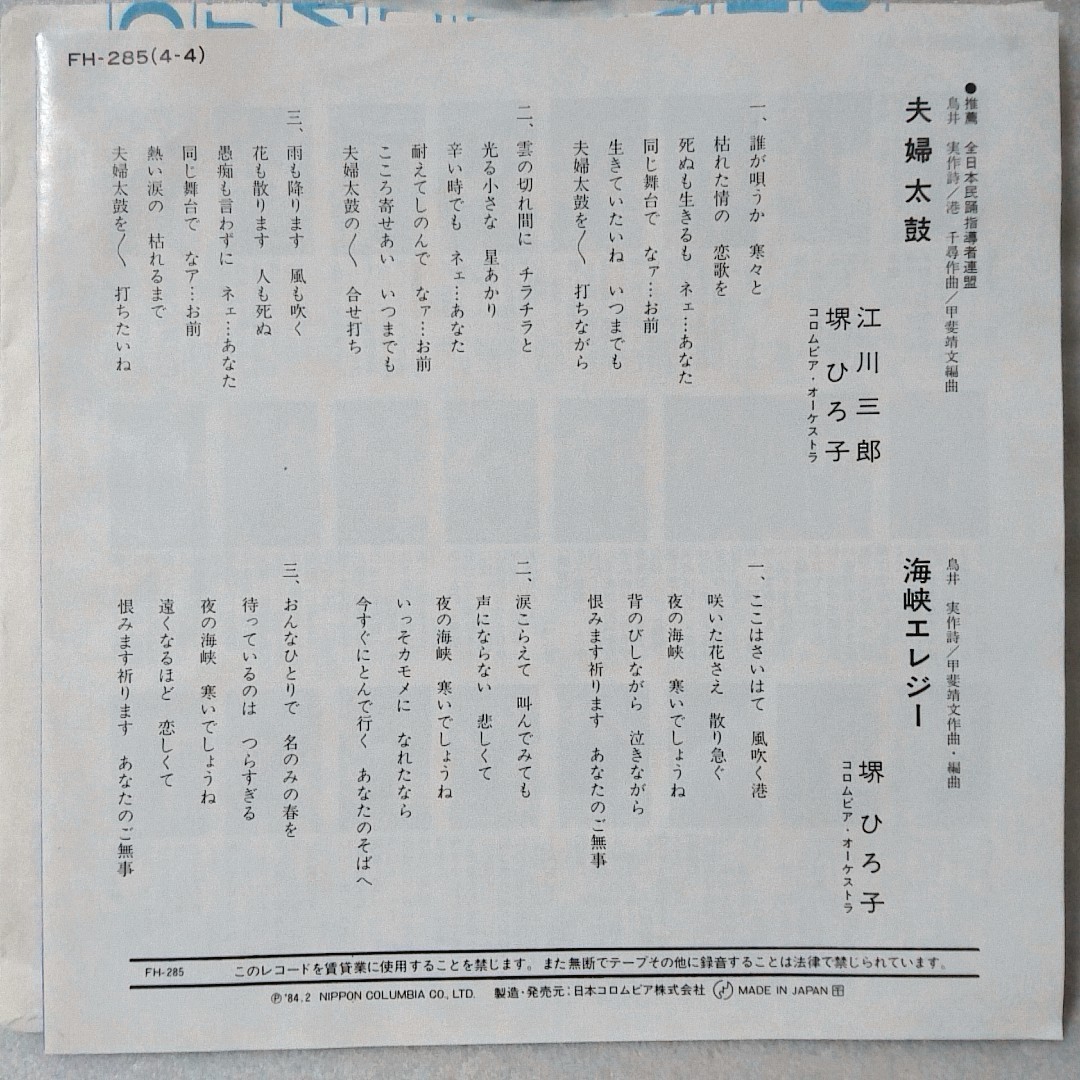 FH-285(4-4)
●推薦 全日本民踊指導者連盟
鳥井 実作詩/港 千尋作曲/甲斐靖文編曲
夫婦太鼓
江川三郎
堺ひろ子
コロムビア・オーケストラ
一、誰が唄うか 寒々と
枯れた情の 恋歌を
死ぬも生きるも ネェ…あなた
同じ舞台で なァ…お前
生きていたいね いつまでも
夫婦太鼓を〱 打ちながら
二、雲の切れ間に チラチラと
光る小さな 星あかり
辛い時でも ネェ…あなた
耐えてしのんで なァ…お前
こころ寄せあい いつまでも
夫婦太鼓の〱 合せ打ち
三、雨も降ります 風も吹く
花も散ります 人も死ぬ
愚痴も言わずに ネェ…あなた
同じ舞台で なァ…お前
熱い涙の 枯れるまで
夫婦太鼓を〱 打ちたいね
鳥井 実作詩/甲斐靖文作曲・編曲
海峡エレジー
堺ひろ子
コロムビア・オーケストラ
一、ここはさいはて 風吹く港
咲いた花さえ 散り急ぐ
夜の海峡 寒いでしょうね
背のびしながら 泣きながら
恨みます祈ります あなたのご無事
二、涙こらえて 叫んでみても
声にならない 悲しくて
夜の海峡 寒いでしょうね
いっそカモメに なれたなら
今すぐにとんで行く あなたのそばへ
三、おんなひとりで 名のみの春を
待っているのは つらすぎる
夜の海峡 寒いでしょうね
遠くなるほど 恋しくて
恨みます祈ります あなたのご無事
FH-285 このレコードを賃貸業に使用することを禁じます。また無断でテープその他に録音することは法律で禁じられています。
Ⓟ'84.2 NIPPON COLUMBIA CO., LTD. 製造・発売元:日本コロムビア株式会社 MADE IN JAPAN